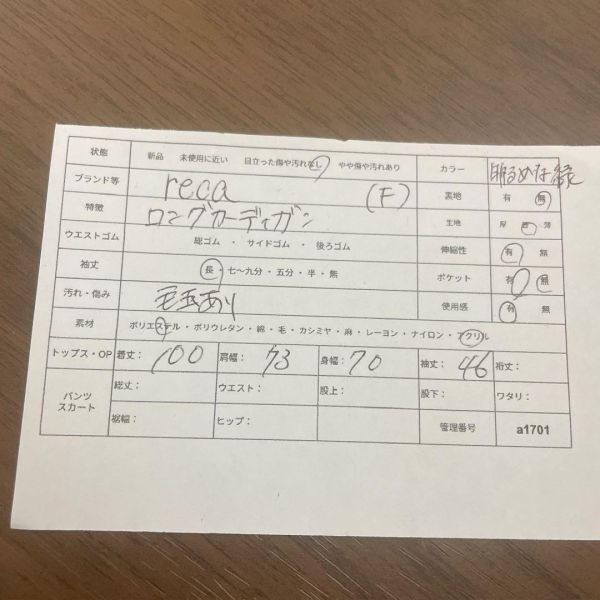 状態 新品 未使用に近い 目立った傷や汚れなし やや傷や汚れあり カラー 明るめな緑
ブランド等 reca (F) 裏地 有 無
特徴 ロングカーディガン 生地 厚 普 薄
ウエストゴム 総ゴム ・ サイドゴム ・ 後ろゴム 伸縮性 有 無
袖丈 長・七～九分・五分・半・無 ポケット 有 無
汚れ・傷み 毛玉あり 使用感 有 無
素材 ポリエステル・ポリウレタン・綿・毛・カシミヤ・麻・レーヨン・ナイロン・アクリル
トップス・OP 着丈: 100 肩幅: 73 身幅: 70 袖丈: 46 裄丈:
パンツ スカート 総丈: ウエスト: 股上: 股下: ワタリ:
裾幅: ヒップ: 管理番号 a1701